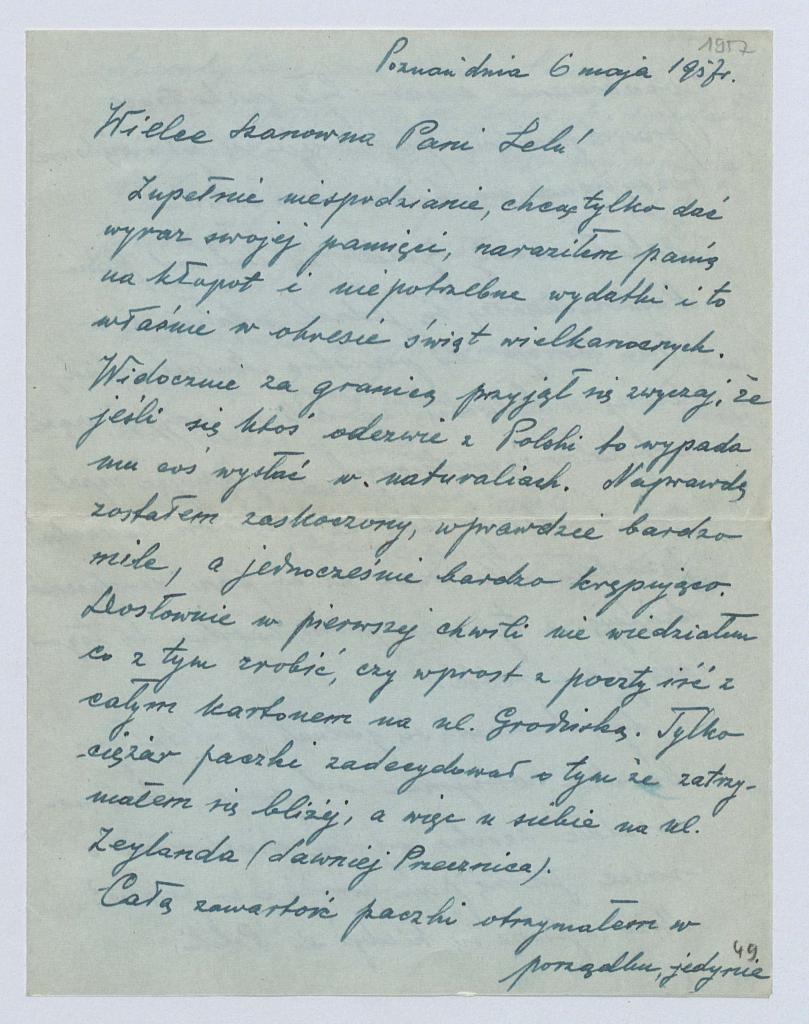 1957
Poznań dnia 6 maja 1957r.
Wielce Szanowna Pani Lelu!
Zupełnie niespodzianie, chcąc tylko dać
wyraz swojej pamięci, naraziłem panią
na kłopot i niepotrzebne wydatki i to
właśnie w okresie świąt wielkanocnych.
Widocznie za granicą przyjął się zwyczaj, że
jeśli się ktoś odezwie z Polski to wypada
mu coś wysłać w naturaliach. Naprawdę
zostałem zaskoczony, wprawdzie bardzo
mile, a jednocześnie bardzo krępująco.
Dosłownie w pierwszej chwili nie wiedziałem
co z tym zrobić, czy wprost z poczty iść z
całym kartonem na ul. Grodziską. Tylko
ciężar paczki zadecydował o tym że zatrzy-
małem się bliżej, a więc u siebie na ul.
Zeylanda (dawniej Przecznica).
Całą zawartość paczki otrzymałem w
porządku, jedynie
49